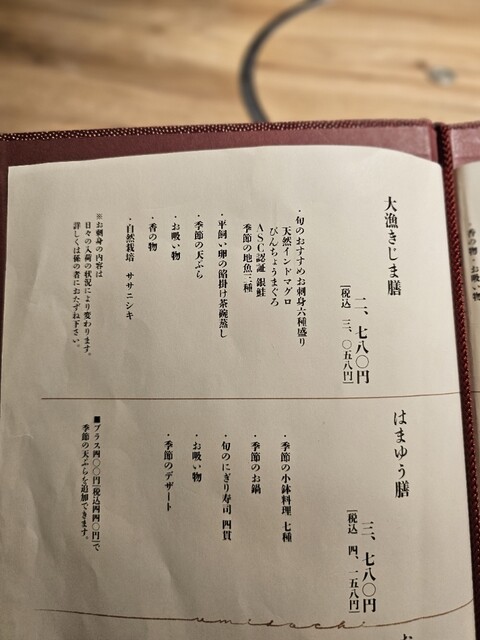 大漁きじま膳
二、七八〇円
[税込 三、〇五八円]
・旬のおすすめお刺身六種盛り
天然インドマグロ
びんちょうまぐろ
ASC認証 銀鮭
季節の地魚三種
・平飼い卵の餡掛け茶碗蒸し
・季節の天ぷら
・お吸い物
・香の物
・自然栽培 ササニシキ
※お刺身の内容は
日々の入荷の状況により変わります。
詳しくは係の者におたずね下さい。
はまゆう膳
三、七八〇円
[税込 四、一五八円]
・季節の小鉢料理 七種
・季節のお鍋
・旬のにぎり寿司 四貫
・お吸い物
・季節のデザート
■プラス四〇〇円[税込四四〇円]で
季節の天ぷらを追加できます。
・香の物・お吸い物